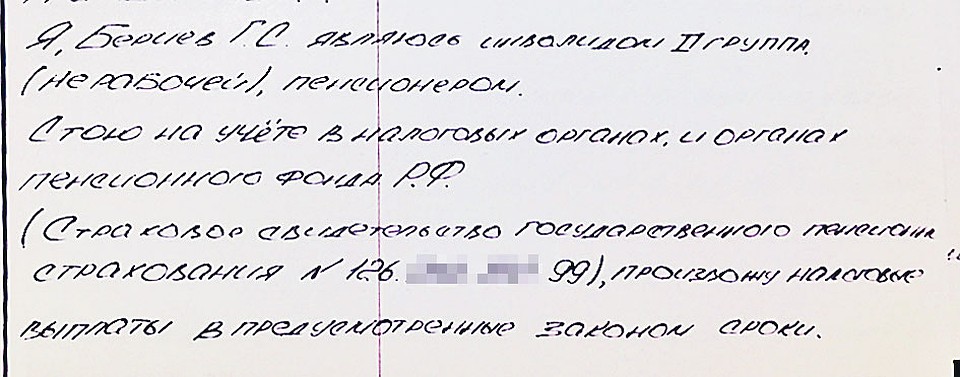 Я, Бериев Г.С. являюсь инвалидом II группа.
(нерабочей), пенсионером.
Стою на учёте в налоговых органах, и органах
пенсионного фонда Р.Ф.
(Страховое свидетельство государственного пенсионн
страхования N 126. 99), произвожу налоговые
выплаты в предусмотренные законом сроки.